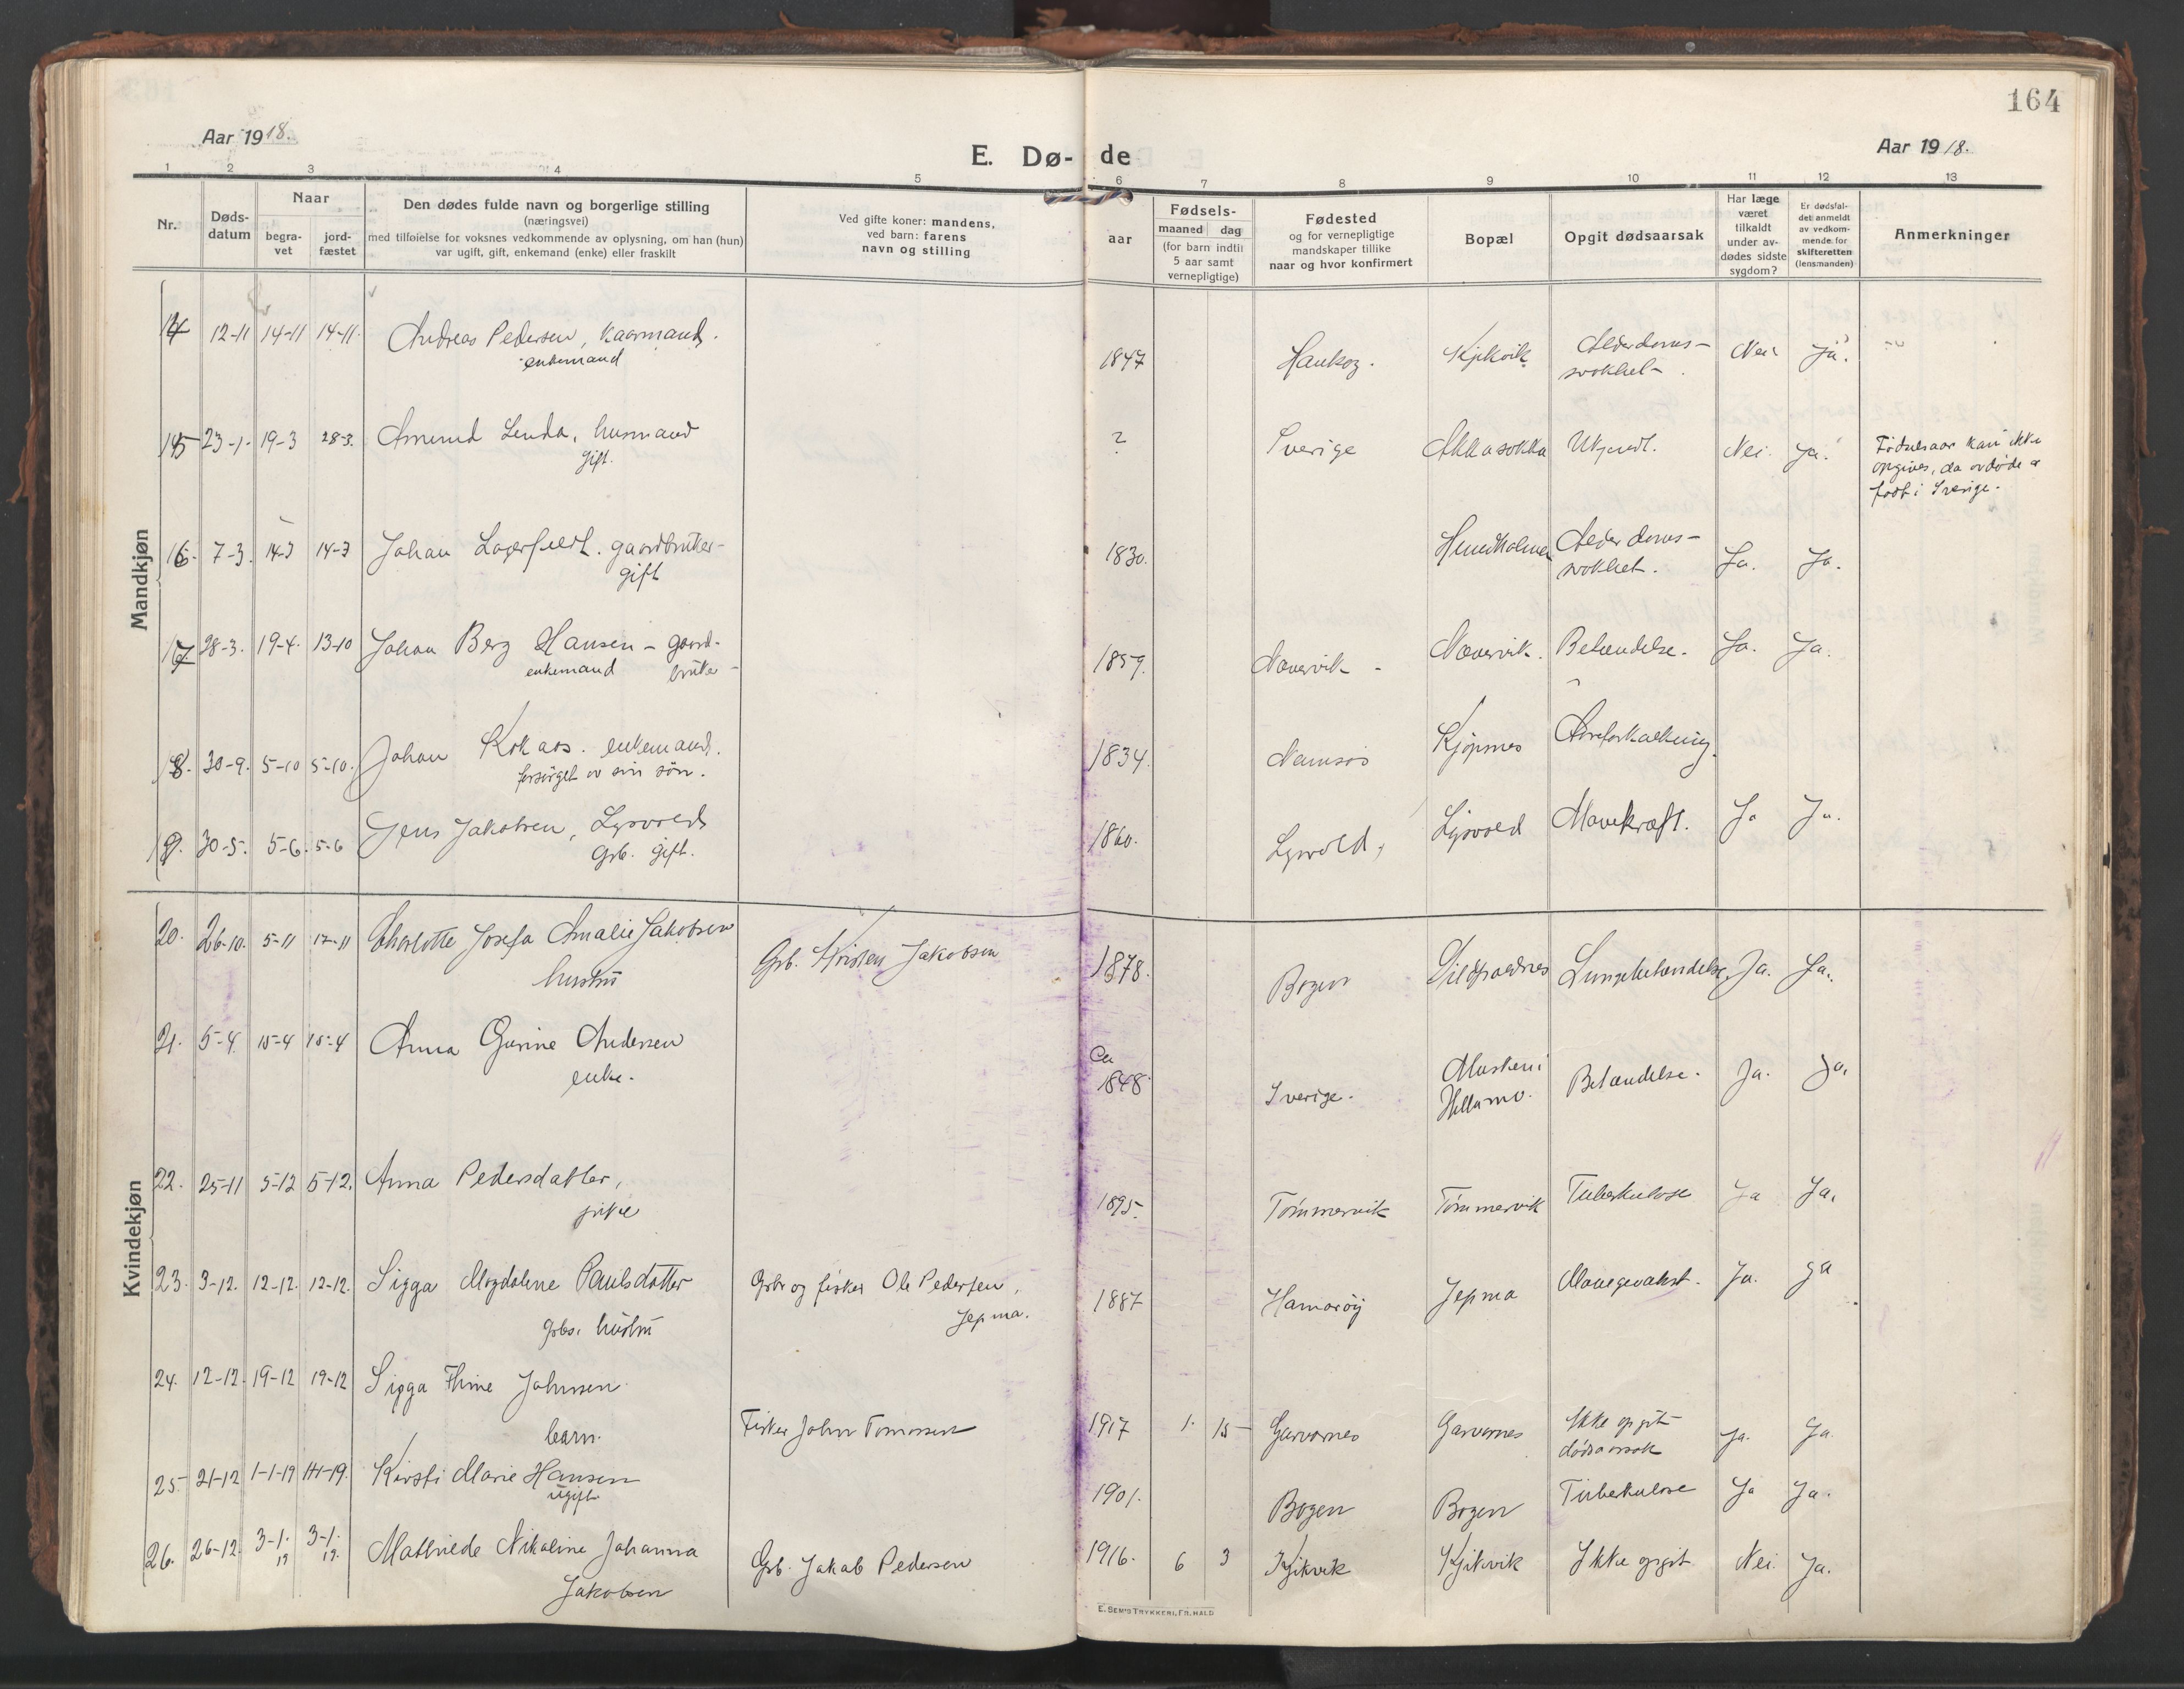 164
Aar 1918.
E. Dø- de
Aar 1918.
1 2 3 4 5 6 7 8 9 10 11 12 13
Nr.
Døds-
datum
Naar
begra-
vet
jord-
fæstet
Den dødes fulde navn og borgerlige stilling
(næringsvei)
med tilføielse for voksnes vedkommende av oplysning, om han (hun)
var ugift, gift, enkemand (enke) eller fraskilt
Ved gifte koner: mandens,
ved barn: farens
navn og stilling
aar
Fødsels-
maaned dag
(for barn indtil
5 aar samt
vernepligtige)
Fødested
og for vernepligtige
mandskaper tillike
naar og hvor konfirmert
Bopæl
Opgit dødsaarsak
Har læge
været
tilkaldt
under av-
dødes sidste
sygdom?
Er dødsfal-
det anmeldt
av vedkom-
mende for
skifteretten
(lensmanden)
Anmerkninger
Mandkjøn
14 12-11 14-11 14-11. Andreas Pedersen, kaarmand. 1847 Haukøy. Kjikvik Alderdoms- Nei Ja.
enkemand svakhet
15 23-1- 19-3 28-3. Amund Lenda, husmand ? Sverige Akkasokka Ukjendt. Nei. Ja. Fødselsaar kan ikke
gift. opgives, da avdøde er
født i Sverige.
16. 7-3. 14-3 14-3 Johan gaardbruker- 1830. Alderdoms- Ja. Ja.
gift svakhet.
17 28-3. 19-4. 13-10 Johan Berg Hansen - gaard- 1859. Nævervik - Nævervik. Betændelse. Ja. Ja.
enkemand bruker -
18. 30-9. 5-10 5-10. Johan Kokaas. enkemand. 1834. Namsos Kjøpsnes Aareforkalkning.
forsørget av sin søn.
19. 30-5. 5-6. 5-6 Jens Jakobsen, Lysvold 1860. Lysvold, Lysvold Mavekræft. Ja Ja.
Grb. gift.
Kvindekjøn
20. 26-10. 5-11 17-11 Charlotte Josefa Amalie Jakobsen Grb. Kristen Jakobsen 1878. Bogen Lungebetændelse. Ja. Ja.
hustru
21. 5-4. 15-4 15-4 Anna Gurine Andersen Ca 1848. Sverige. Musken i Betændelse. Ja. Ja.
enke. Hellamo.
22. 25-11 5-12 5-12. Anna Pedersdatter, 1895. Tømmervik Tømmervik Tuberkulose Ja Ja.
pike
23. 3-12. 12-12. 12-12. Sigga Magdalene Paulsdatter Grbr og fisker Ole Pedersen, 1887 Hamarøy Jepma Mavegevekst. Ja. Ja
Grbs. hustru Jepma.
24. 12-12. 19-12 19-12 Sigga Thine Johnsen
barn. Fisker John Tommsen 1917 1. 15 Garvernes Garvernes Ikke opgit Ja. Ja
dødsaarsak
25. 21-12 1-1-19 1-1-19. Kirsti Marie Hansen 1901. Bogen Bogen Tuberkulose Ja Ja.
ugift
26. 26-12. 3-1. 3-1. Mathilde Nikoline Johanna Grb. Jakob Pedersen 1916. 6 3 Kjikvik Kjikvik Ikke opgit Nei. Ja.
19 19.
Jakobsen
E. SEM'S TRYKKERI, FR. HALD